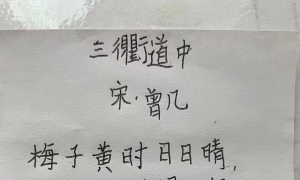 三衢道中
宋·曾几
梅子黄时日日晴，